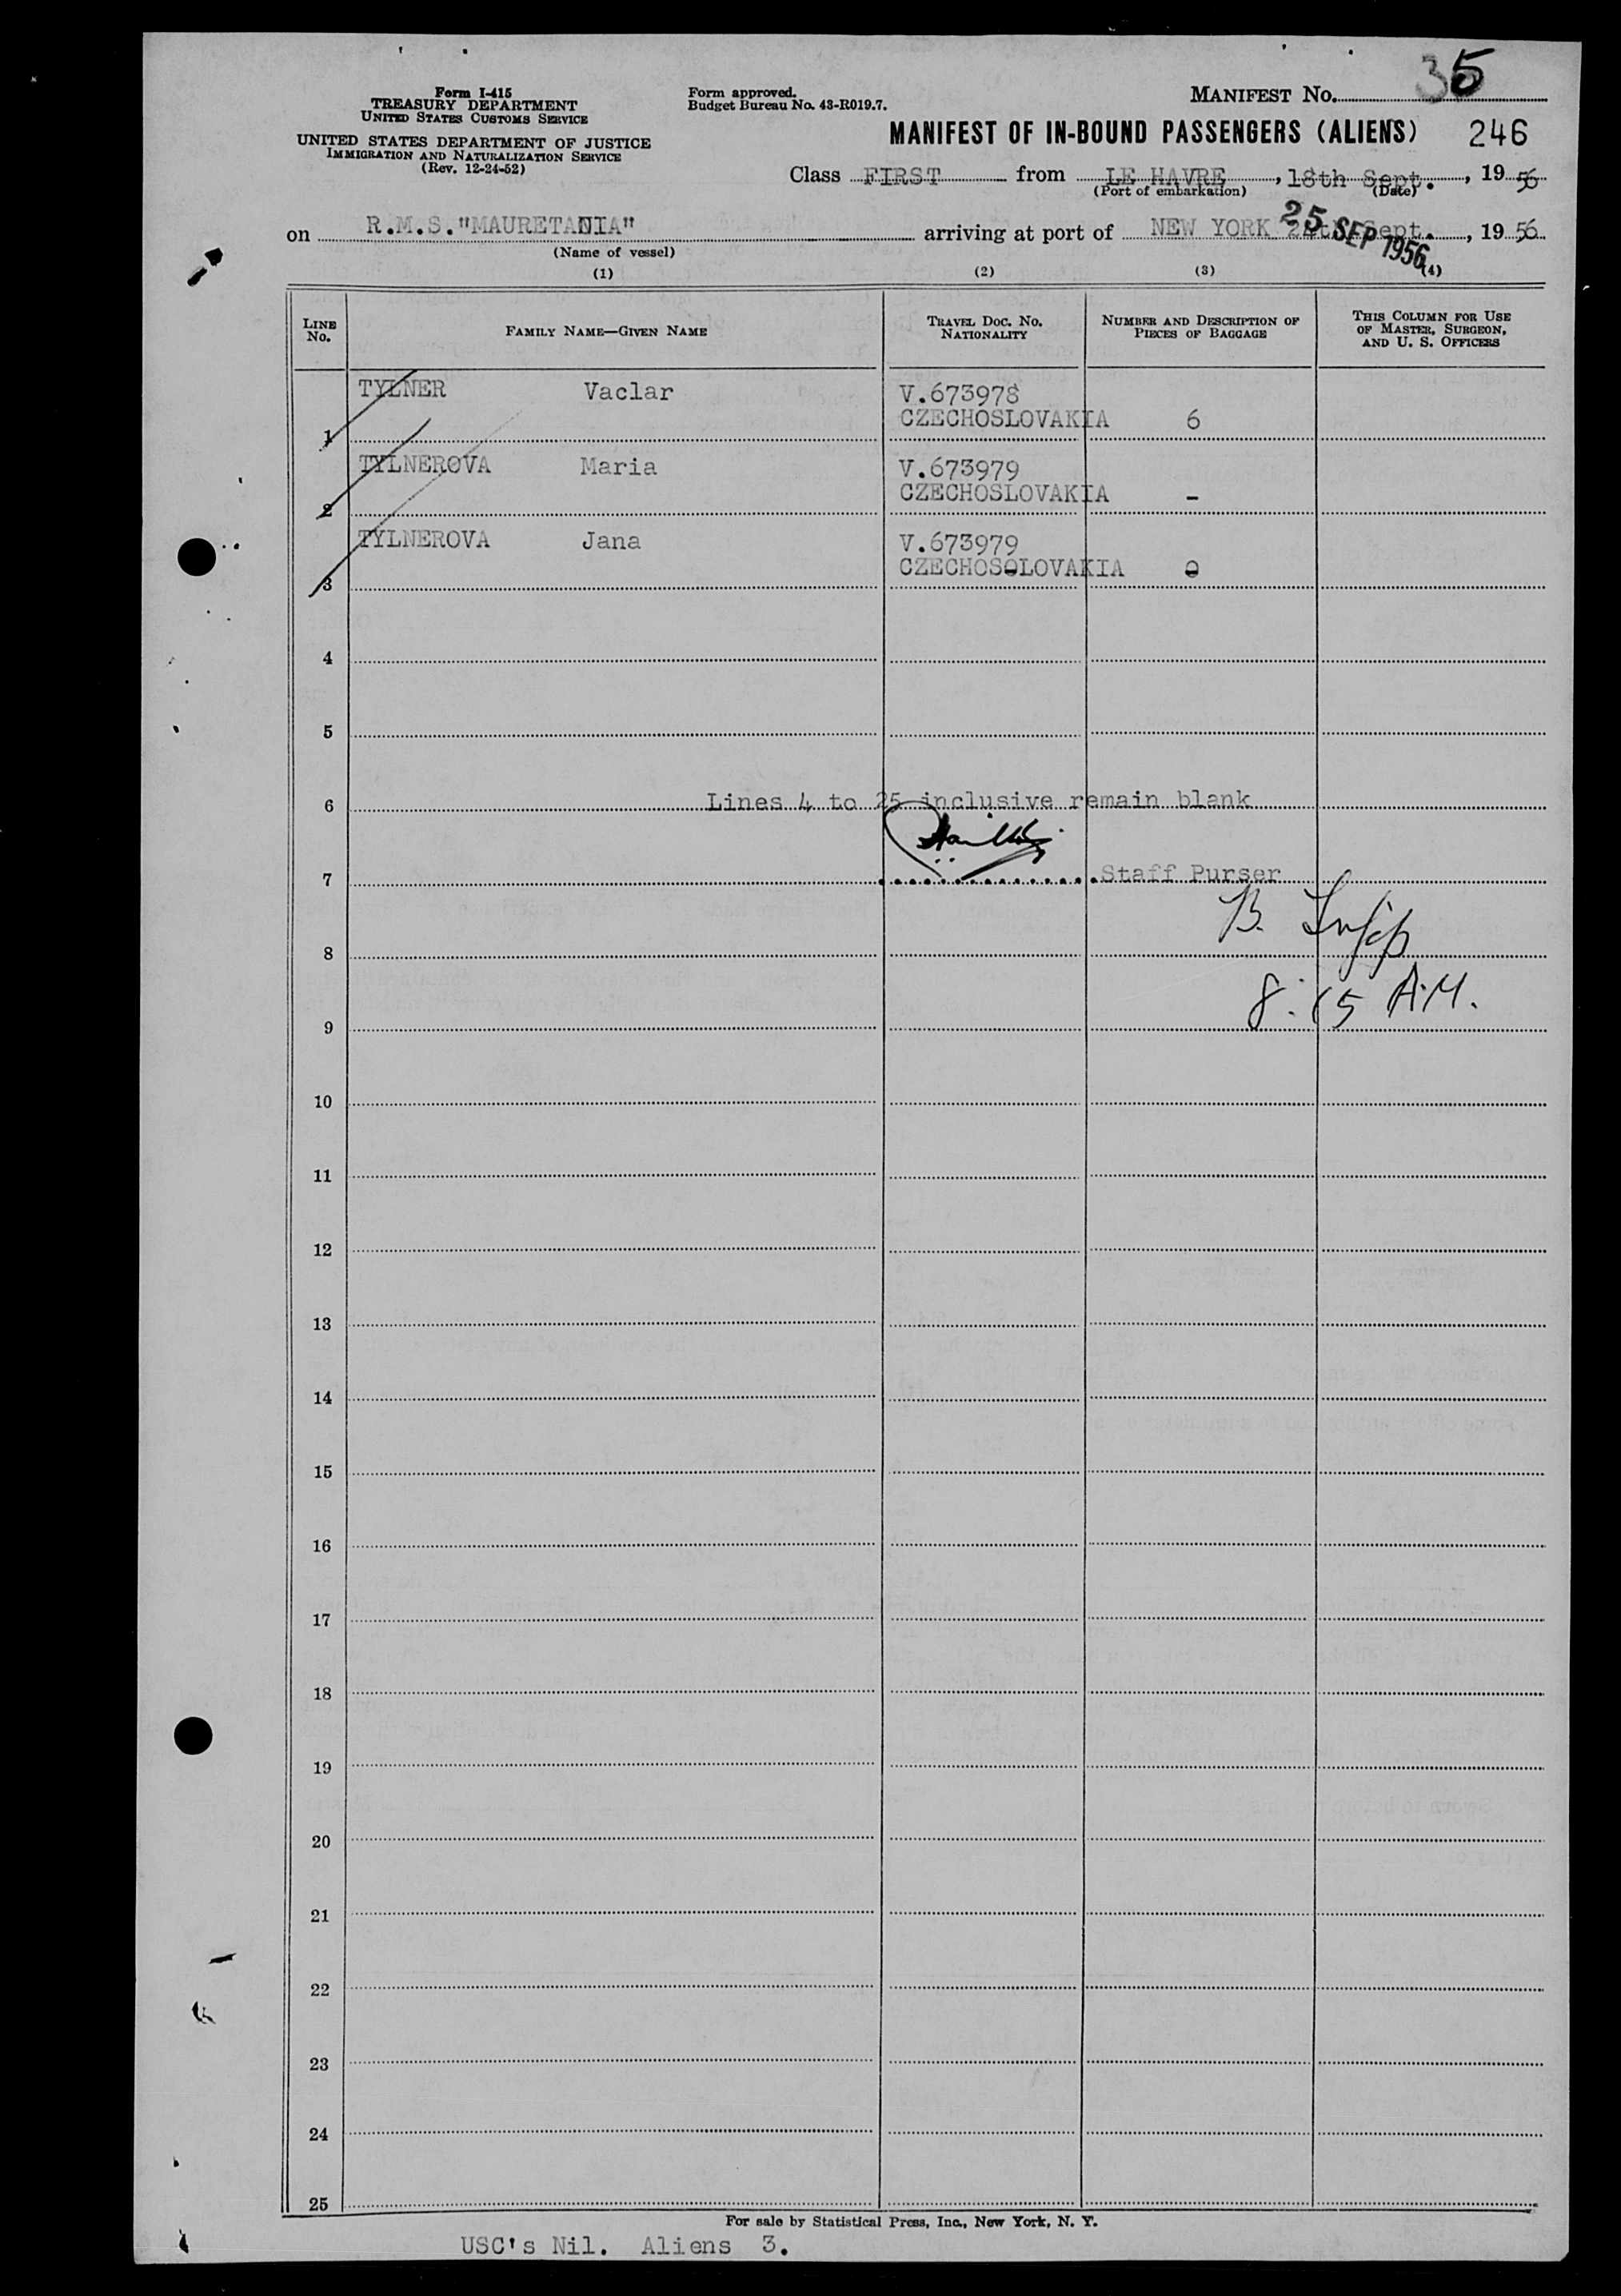 Form I-415
TREASURY DEPARTMENT
UNITED STATES CUSTOMS SERVICE
UNITED STATES DEPARTMENT OF JUSTICE
IMMIGRATION AND NATURALIZATION SERVICE
(Rev. 12-24-52)
Form approved.
Budget Bureau No. 43-R019.7.
MANIFEST No. 35
MANIFEST OF IN-BOUND PASSENGERS (ALIENS) 246
Class FIRST from LE HAVRE, 18th Sept., 19 56
(Port of embarkation) (Date)
on R.M.S."MAURETANIA" arriving at port of NEW YORK Sept., 19 56
25 SEP 1956
(Name of vessel)
(1) (2) (3) (4)
LINE No. FAMILY NAME—GIVEN NAME TRAVEL DOC. No. NATIONALITY NUMBER AND DESCRIPTION OF PIECES OF BAGGAGE THIS COLUMN FOR USE OF MASTER, SURGEON, AND U. S. OFFICERS
TYLNER Vaclar V.673978
1 CZECHOSLOVAKIA 6
TYLNEROVA Maria V.673979
2 CZECHOSLOVAKIA -
TYLNEROVA Jana V.673979
3 CZECHOSOLOVAKIA 0
4
5
6 Lines 4 to 25 inclusive remain blank
7 Staff Purser
B.
8
8:15 A.M.
9
10
11
12
13
14
15
16
17
18
19
20
21
22
23
24
25
For sale by Statistical Press, Inc., New York, N. Y.
USC's Nil. Aliens 3.